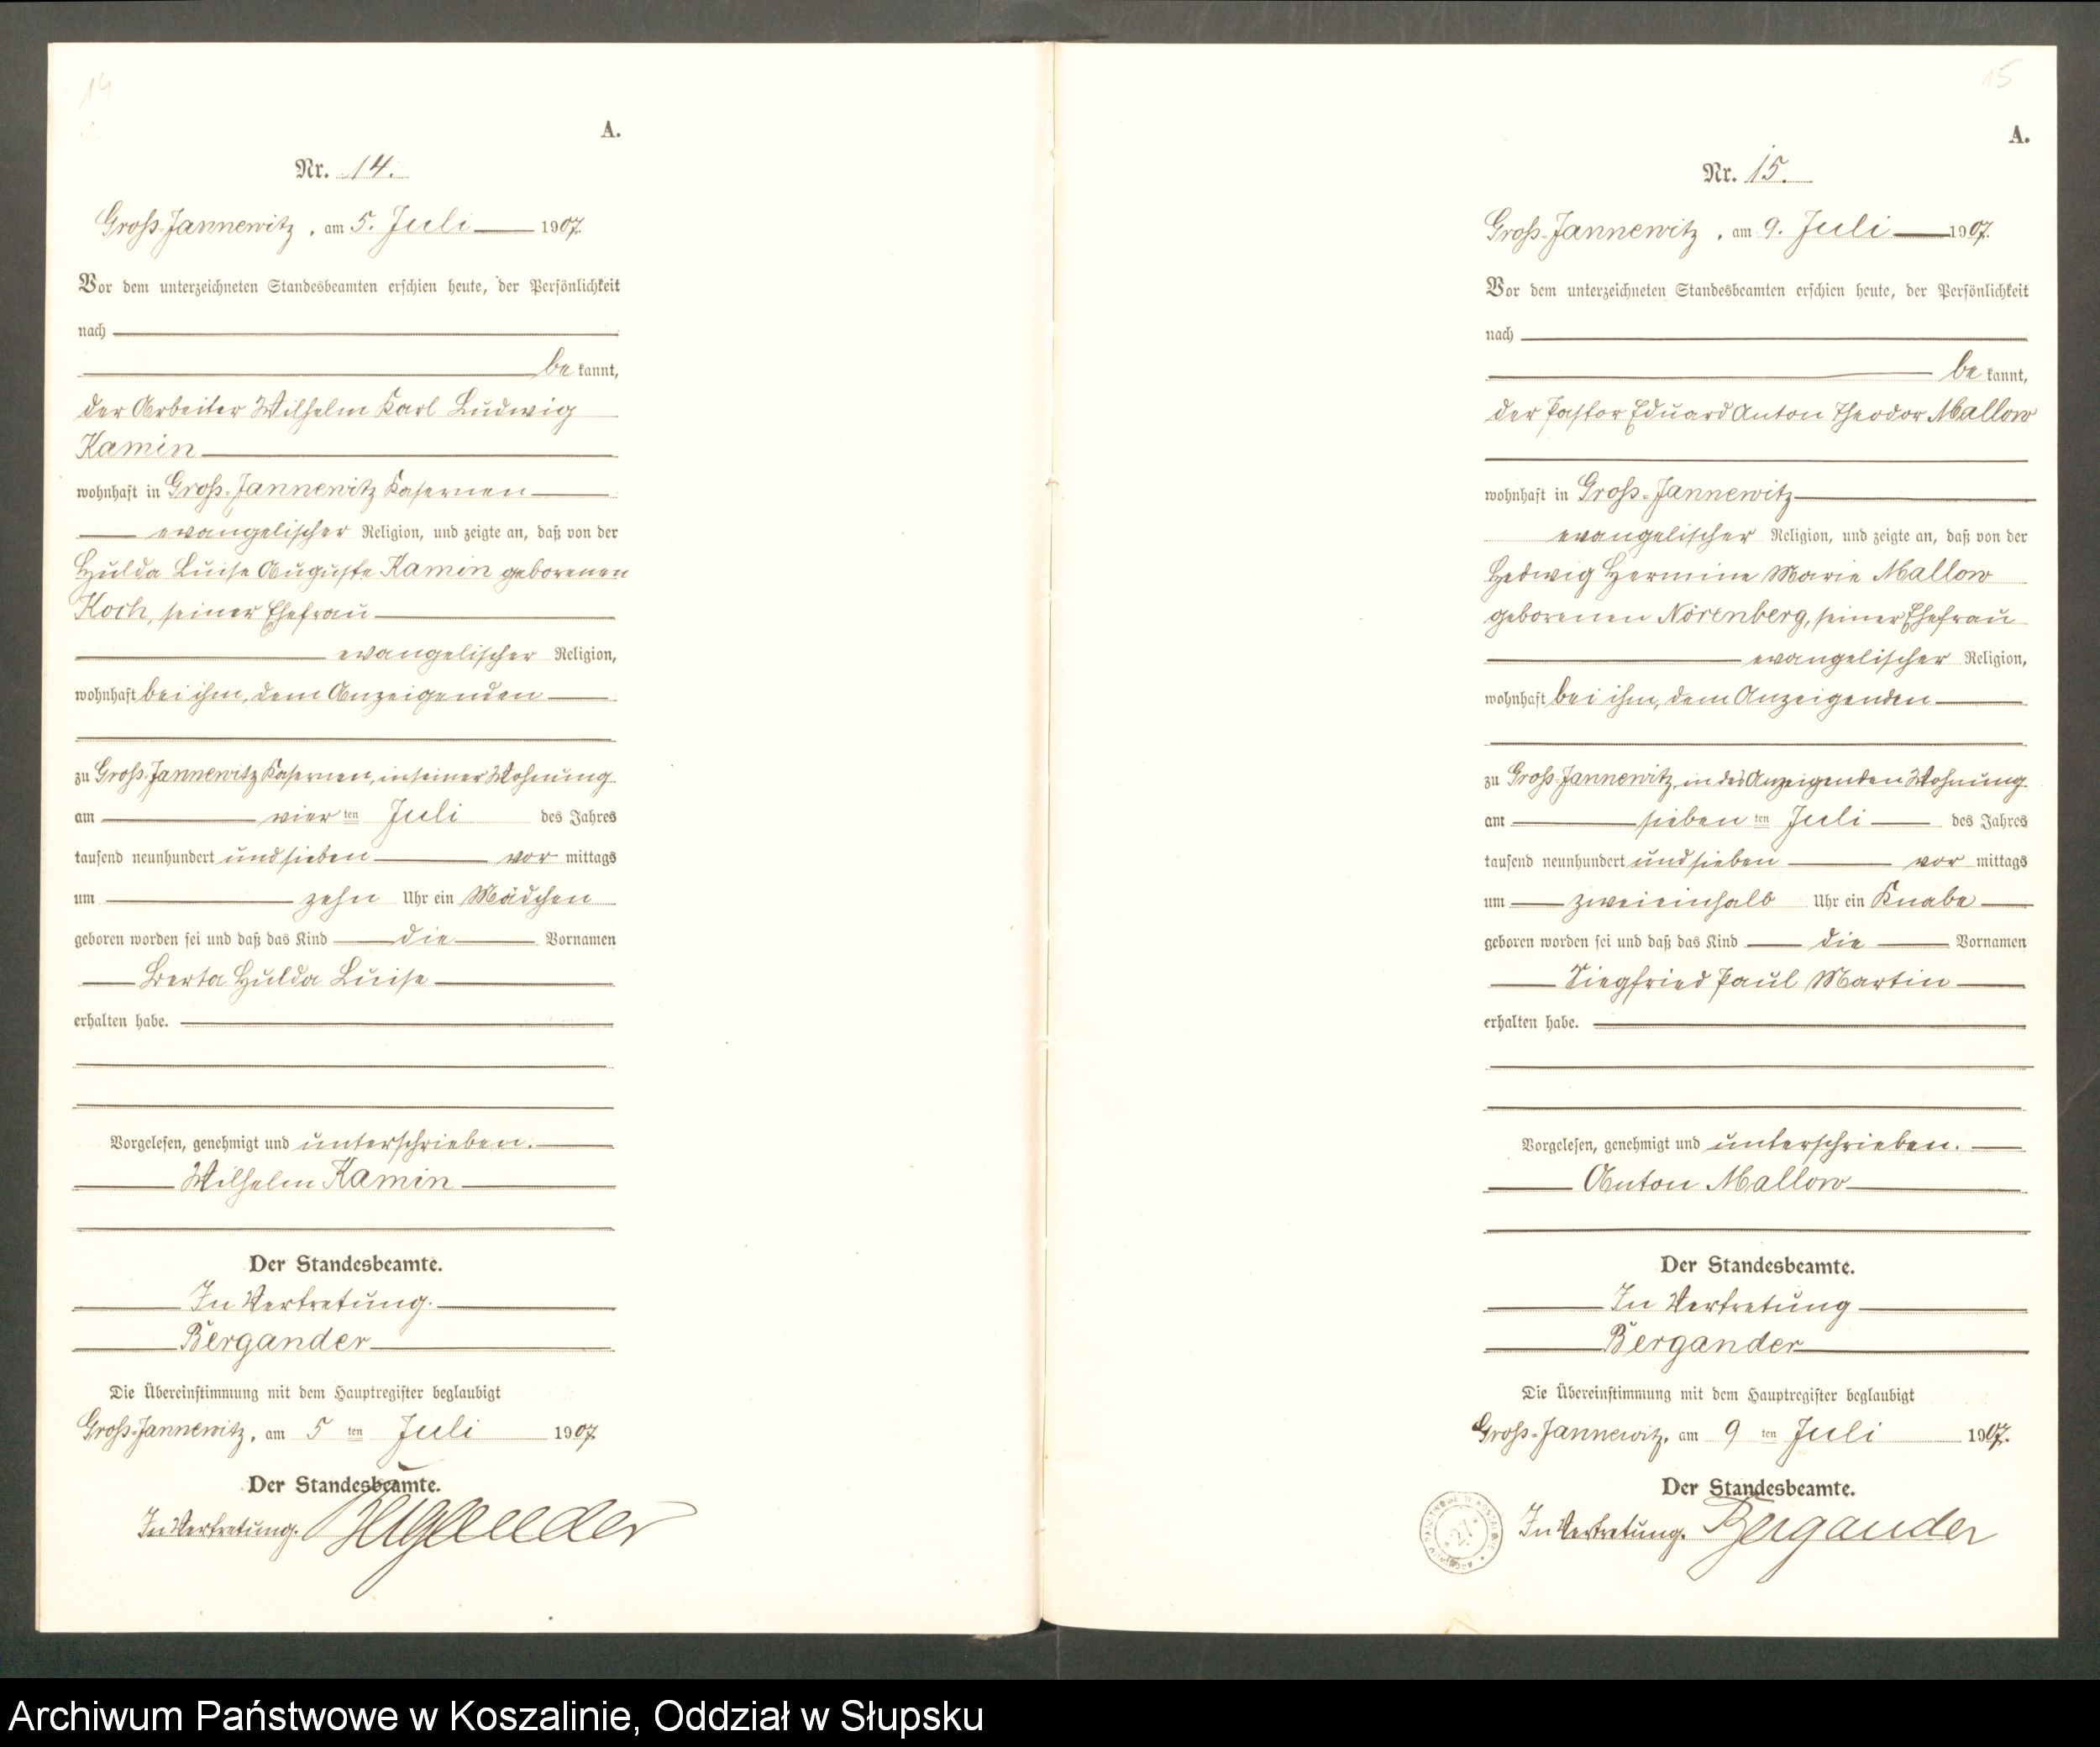 14
A.
Nr. 14.
Groß-Jannewitz, am 5. Juli 1907.
Vor dem unterzeichneten Standesbeamten erschien heute, der Persönlichkeit
nach
be kannt,
der Arbeiter Wilhelm Karl Ludwig
Kamin
wohnhaft in Groß-Jannewitz Kasernen
evangelischer Religion, und zeigte an, daß von der
Hulda Luise Auguste Kamin geborenen
Koch, seiner Ehefrau
evangelischer Religion,
wohnhaft bei ihm, dem Anzeigenden
zu Groß-Jannewitz Kasernen, in seiner Wohnung
am vier ten Juli des Jahres
tausend neunhundert und sieben vor mittags
um zehn Uhr ein Mädchen
geboren worden sei und daß das Kind die Vornamen
Berta Hulda Luise
erhalten habe.
Vorgelesen, genehmigt und unterschrieben.
Wilhelm Kamin
Der Standesbeamte.
In Vertretung.
Bergander
Die Übereinstimmung mit dem Hauptregister beglaubigt
Groß-Jannewitz, am 5 ten Juli 1907.
Der Standesbeamte.
In Vertretung. Bergander
15
A.
Nr. 15.
Groß-Jannewitz, am 9. Juli 1907.
Vor dem unterzeichneten Standesbeamten erschien heute, der Persönlichkeit
nach
be kannt,
der Pastor Eduard Anton Theodor Mallow
wohnhaft in Groß-Jannewitz
evangelischer Religion, und zeigte an, daß von der
Hedwig Hermine Marie Mallow
geborenen Nörenberg, seiner Ehefrau
evangelischer Religion,
wohnhaft bei ihm, dem Anzeigenden
zu Groß-Jannewitz, in des Anzeigenden Wohnung
am sieben ten Juli des Jahres
tausend neunhundert und sieben vor mittags
um zweieinhalb Uhr ein Knabe
geboren worden sei und daß das Kind die Vornamen
Siegfried Paul Martin
erhalten habe.
Vorgelesen, genehmigt und unterschrieben.
Anton Mallow
Der Standesbeamte.
In Vertretung
Bergander
Die Übereinstimmung mit dem Hauptregister beglaubigt
Groß-Jannewitz, am 9 ten Juli 1907.
Der Standesbeamte.
In Vertretung. Bergander
Archiwum Państwowe w Koszalinie, Oddział w Słupsku